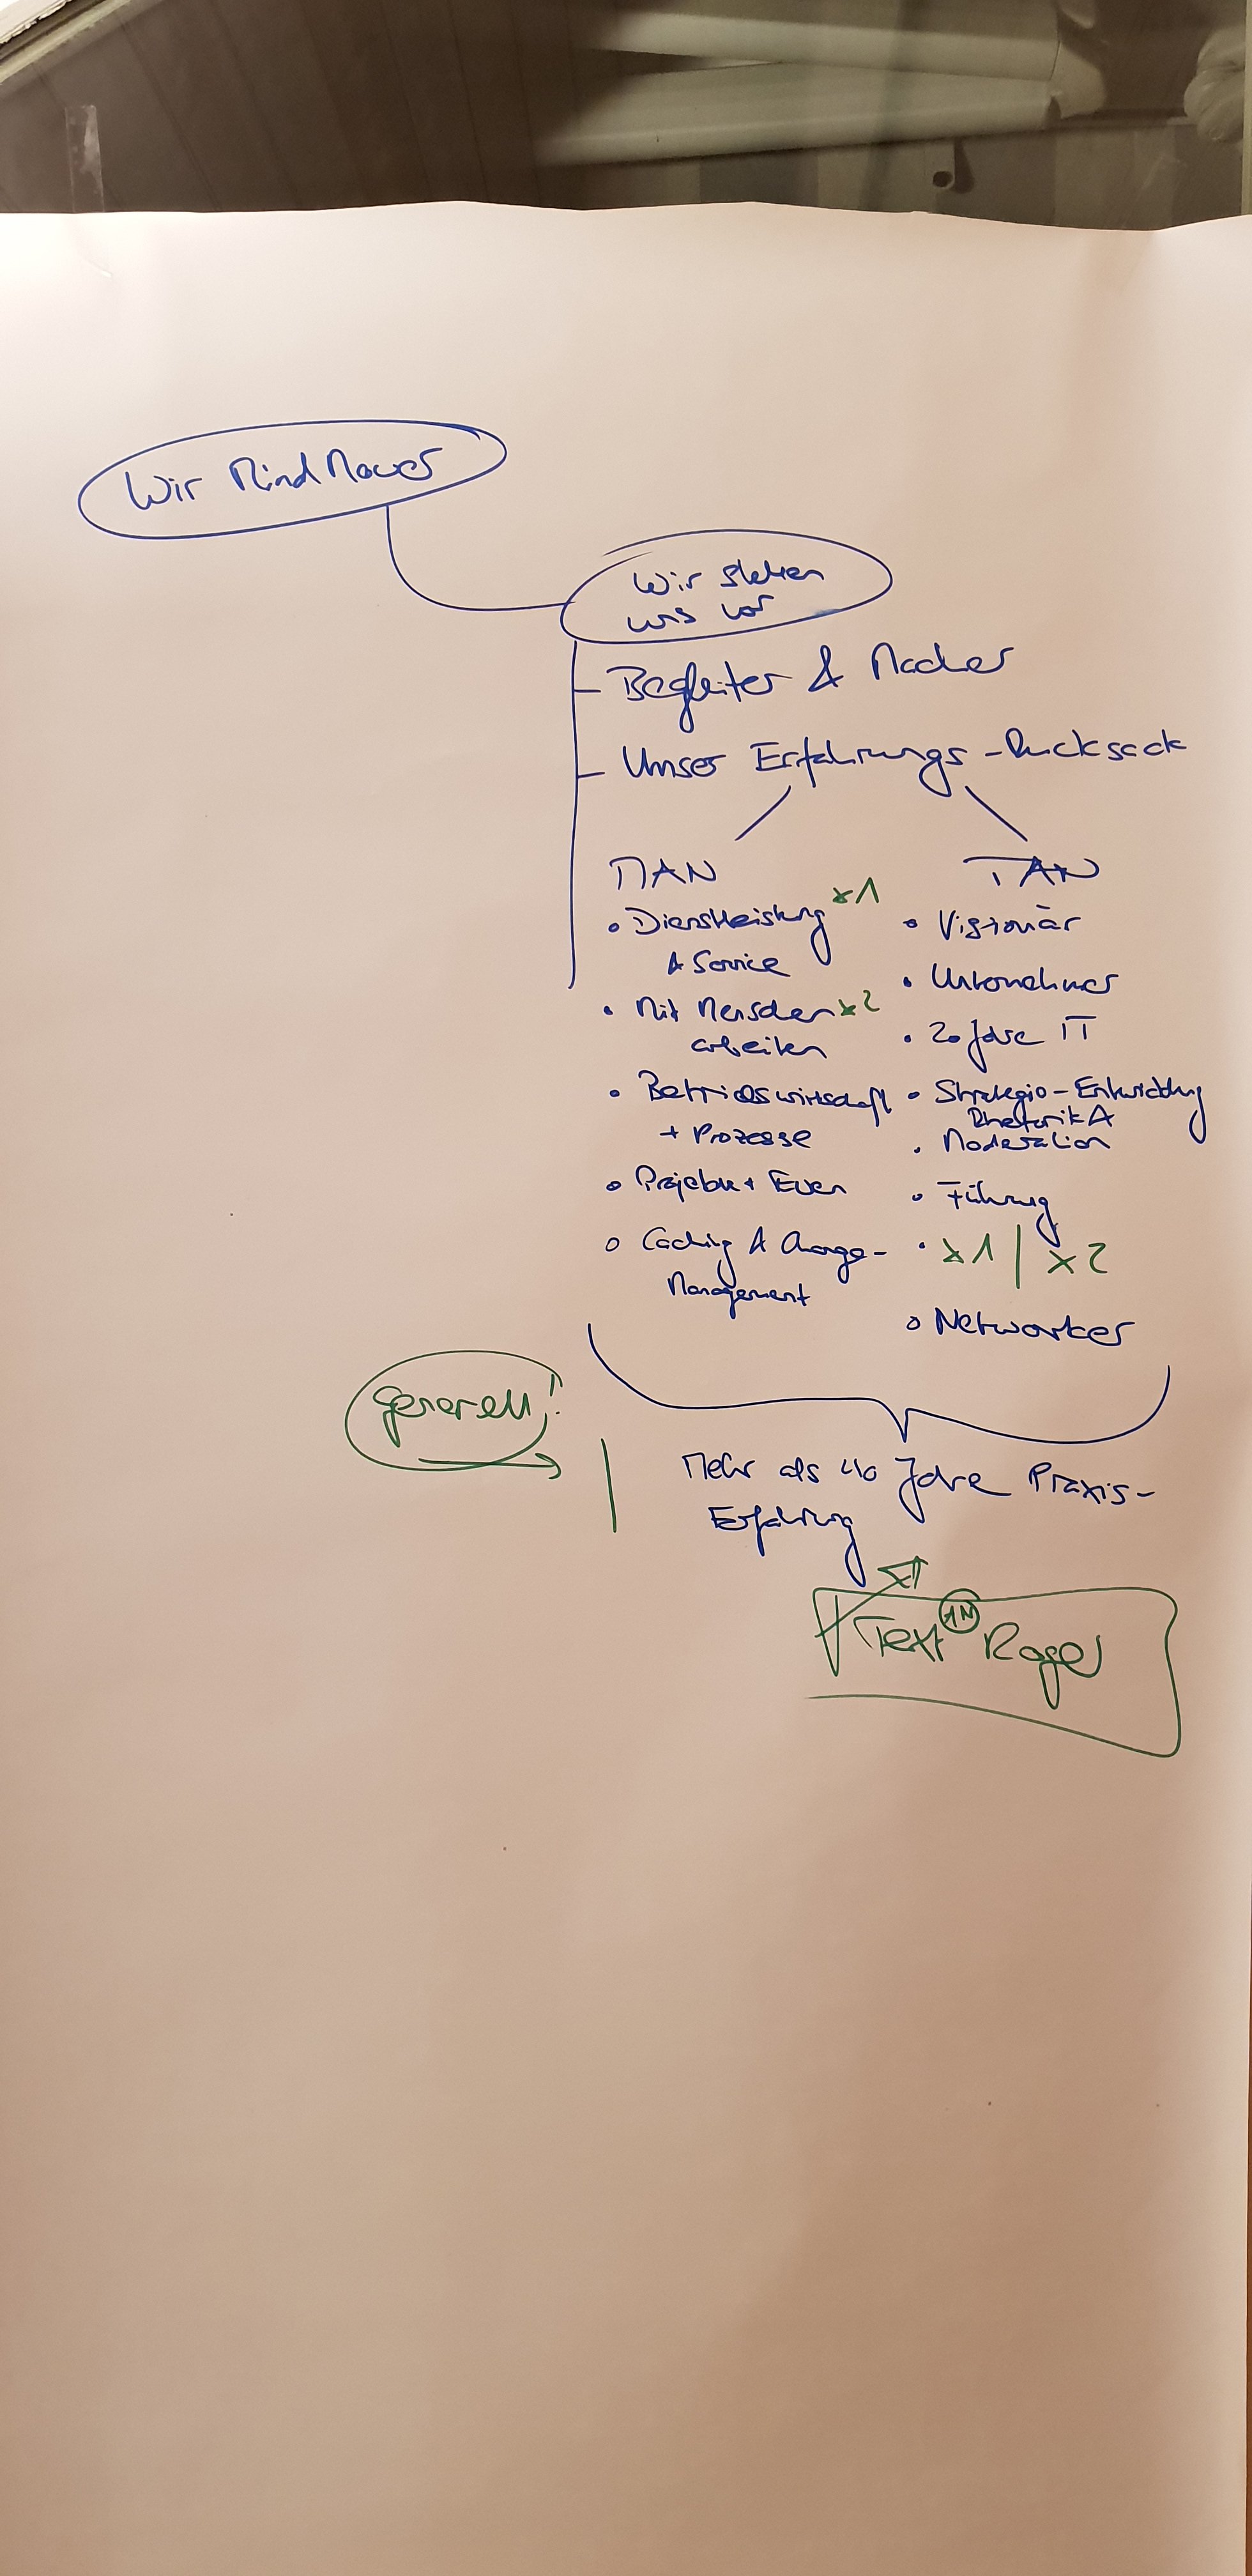 Wir MindMover
Wir stellen
uns vor
Begleiter & Macher
Unser Erfahrungs-Rucksack
MAN
TAN
• Dienstleistung x1
& Service
• Mit Menschen x2
arbeiten
• Betriebswirtschaft
+ Prozesse
• Projekte + Even
• Coaching & Change-
Management
• Visionär
• Unternehmer
• 20 Jahre IT
• Strategie-Entwicklung
Rhetorik &
• Moderation
• Führung
• x1 | x2
• Networker
generell!
Mehr als 40 Jahre Praxis-
Erfahrung
Text Roger